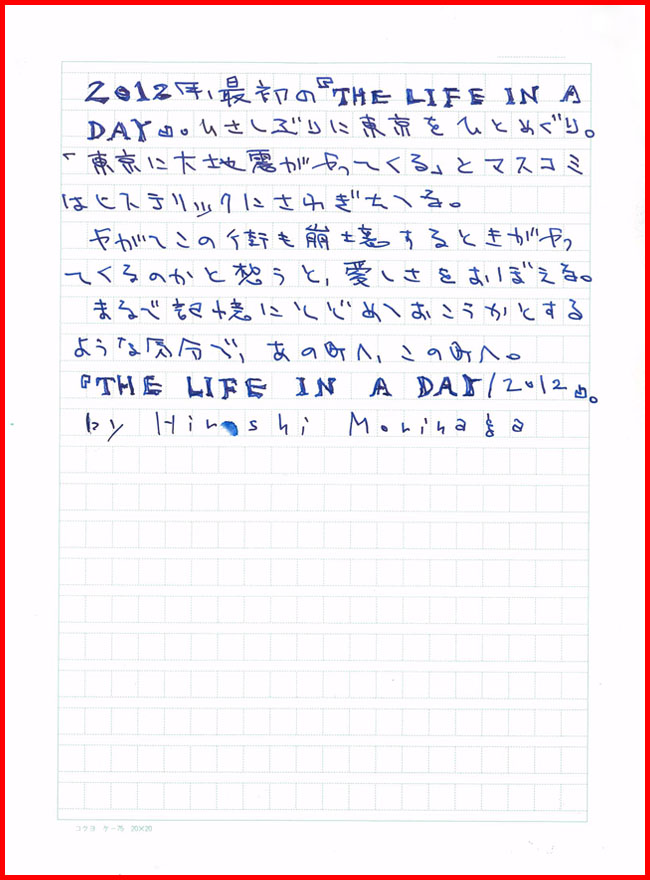 2012年、最初の『THE LIFE IN A
DAY』。ひさしぶりに東京をひとめぐり。
「東京に大地震がやってくる」とマスコミ
はヒステリックにさわぎたてる。
やがてこの街も崩壊するときがやっ
てくるのかと想うと、愛しさをおぼえる。
まるで記憶にとどめておこうかとする
ような気分で、あの町へ、この町へ。
『THE LIFE IN A DAY/2012』。
by Hiroshi Morinaga
コクヨ ケ-75 20×20